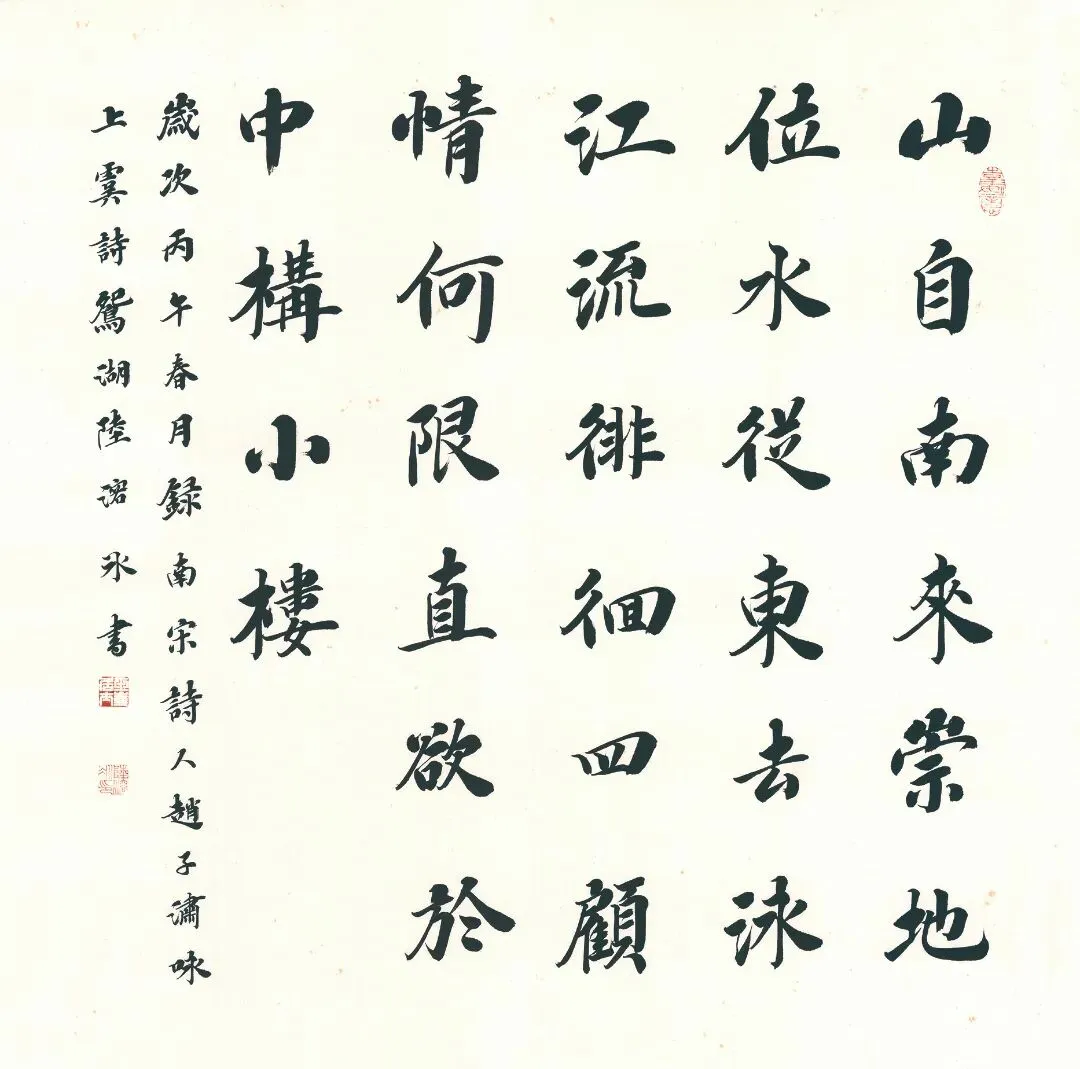 山自南來崇地
位水從東去泳
江流徘徊四顧
情何限直欲於
中構小樓
歲次丙午春月録南宋詩人趙子潚咏
上虞詩鴛湖陸
冰書